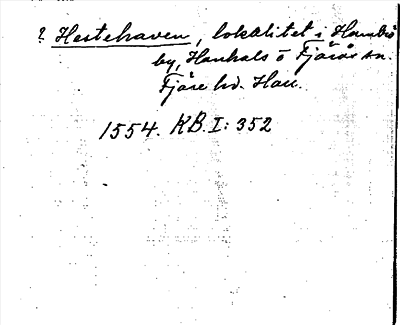 ? Hestehaven, lokalitet i
by, Hanhals o Fjärås sn.
Fjäre hd. Hall.
1554. KB. I: 352